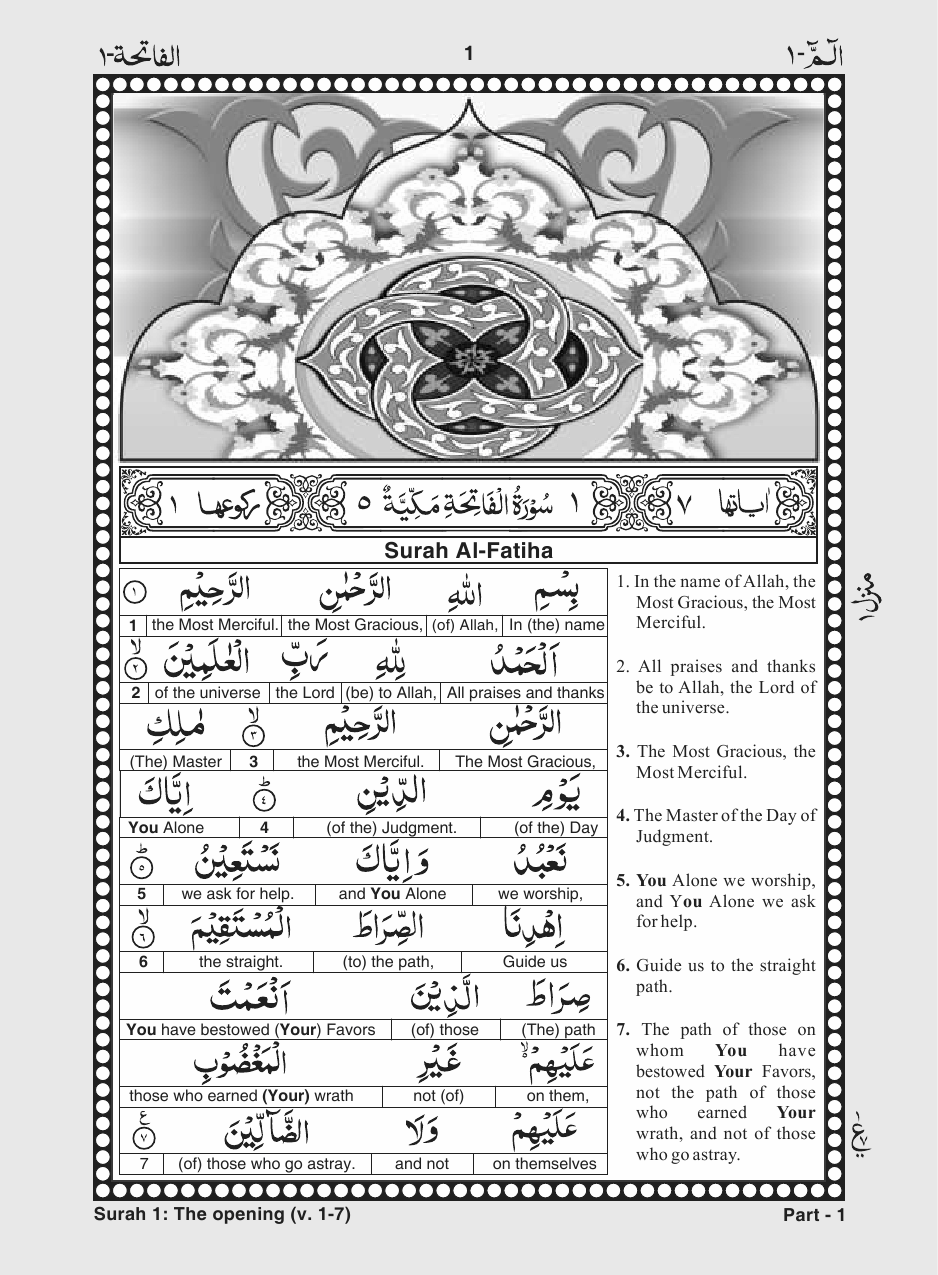 الفاتحة-١
1
الٓمّٓ-١
اٰیاتها ٧
١ سُوْرَةُ الْفَاتِحَةِ مَكِّيَّةٌ ٥
رکوعها ١
Surah Al-Fatiha
بِسْمِ اللّٰهِ الرَّحْمٰنِ الرَّحِيْمِ ١
1 the Most Merciful. the Most Gracious, (of) Allah, In (the) name
اَلْحَمْدُ لِلّٰهِ رَبِّ الْعٰلَمِيْنَ ۙ ٢
2 of the universe the Lord (be) to Allah, All praises and thanks
الرَّحْمٰنِ الرَّحِيْمِ ۙ ٣ مٰلِكِ
(The) Master 3 the Most Merciful. The Most Gracious,
يَوْمِ الدِّيْنِ ؕ ٤ اِيَّاكَ
You Alone 4 (of the) Judgment. (of the) Day
نَعْبُدُ وَاِيَّاكَ نَسْتَعِيْنُ ؕ ٥
5 we ask for help. and You Alone we worship,
اِهْدِنَا الصِّرَاطَ الْمُسْتَقِيْمَ ۙ ٦
6 the straight. (to) the path, Guide us
صِرَاطَ الَّذِيْنَ اَنْعَمْتَ
You have bestowed (Your) Favors (of) those (The) path
عَلَيْهِمْ ۙ۬ غَيْرِ الْمَغْضُوْبِ
those who earned (Your) wrath not (of) on them,
عَلَيْهِمْ وَلَا الضَّآلِّيْنَ ع ٧
7 (of) those who go astray. and not on themselves
1. In the name of Allah, the
Most Gracious, the Most
Merciful.
2. All praises and thanks
be to Allah, the Lord of
the universe.
3. The Most Gracious, the
Most Merciful.
4. The Master of the Day of
Judgment.
5. You Alone we worship,
and You Alone we ask
for help.
6. Guide us to the straight
path.
7. The path of those on
whom You have
bestowed Your Favors,
not the path of those
who earned Your
wrath, and not of those
who go astray.
منزل ١
Surah 1: The opening (v. 1-7)
Part - 1